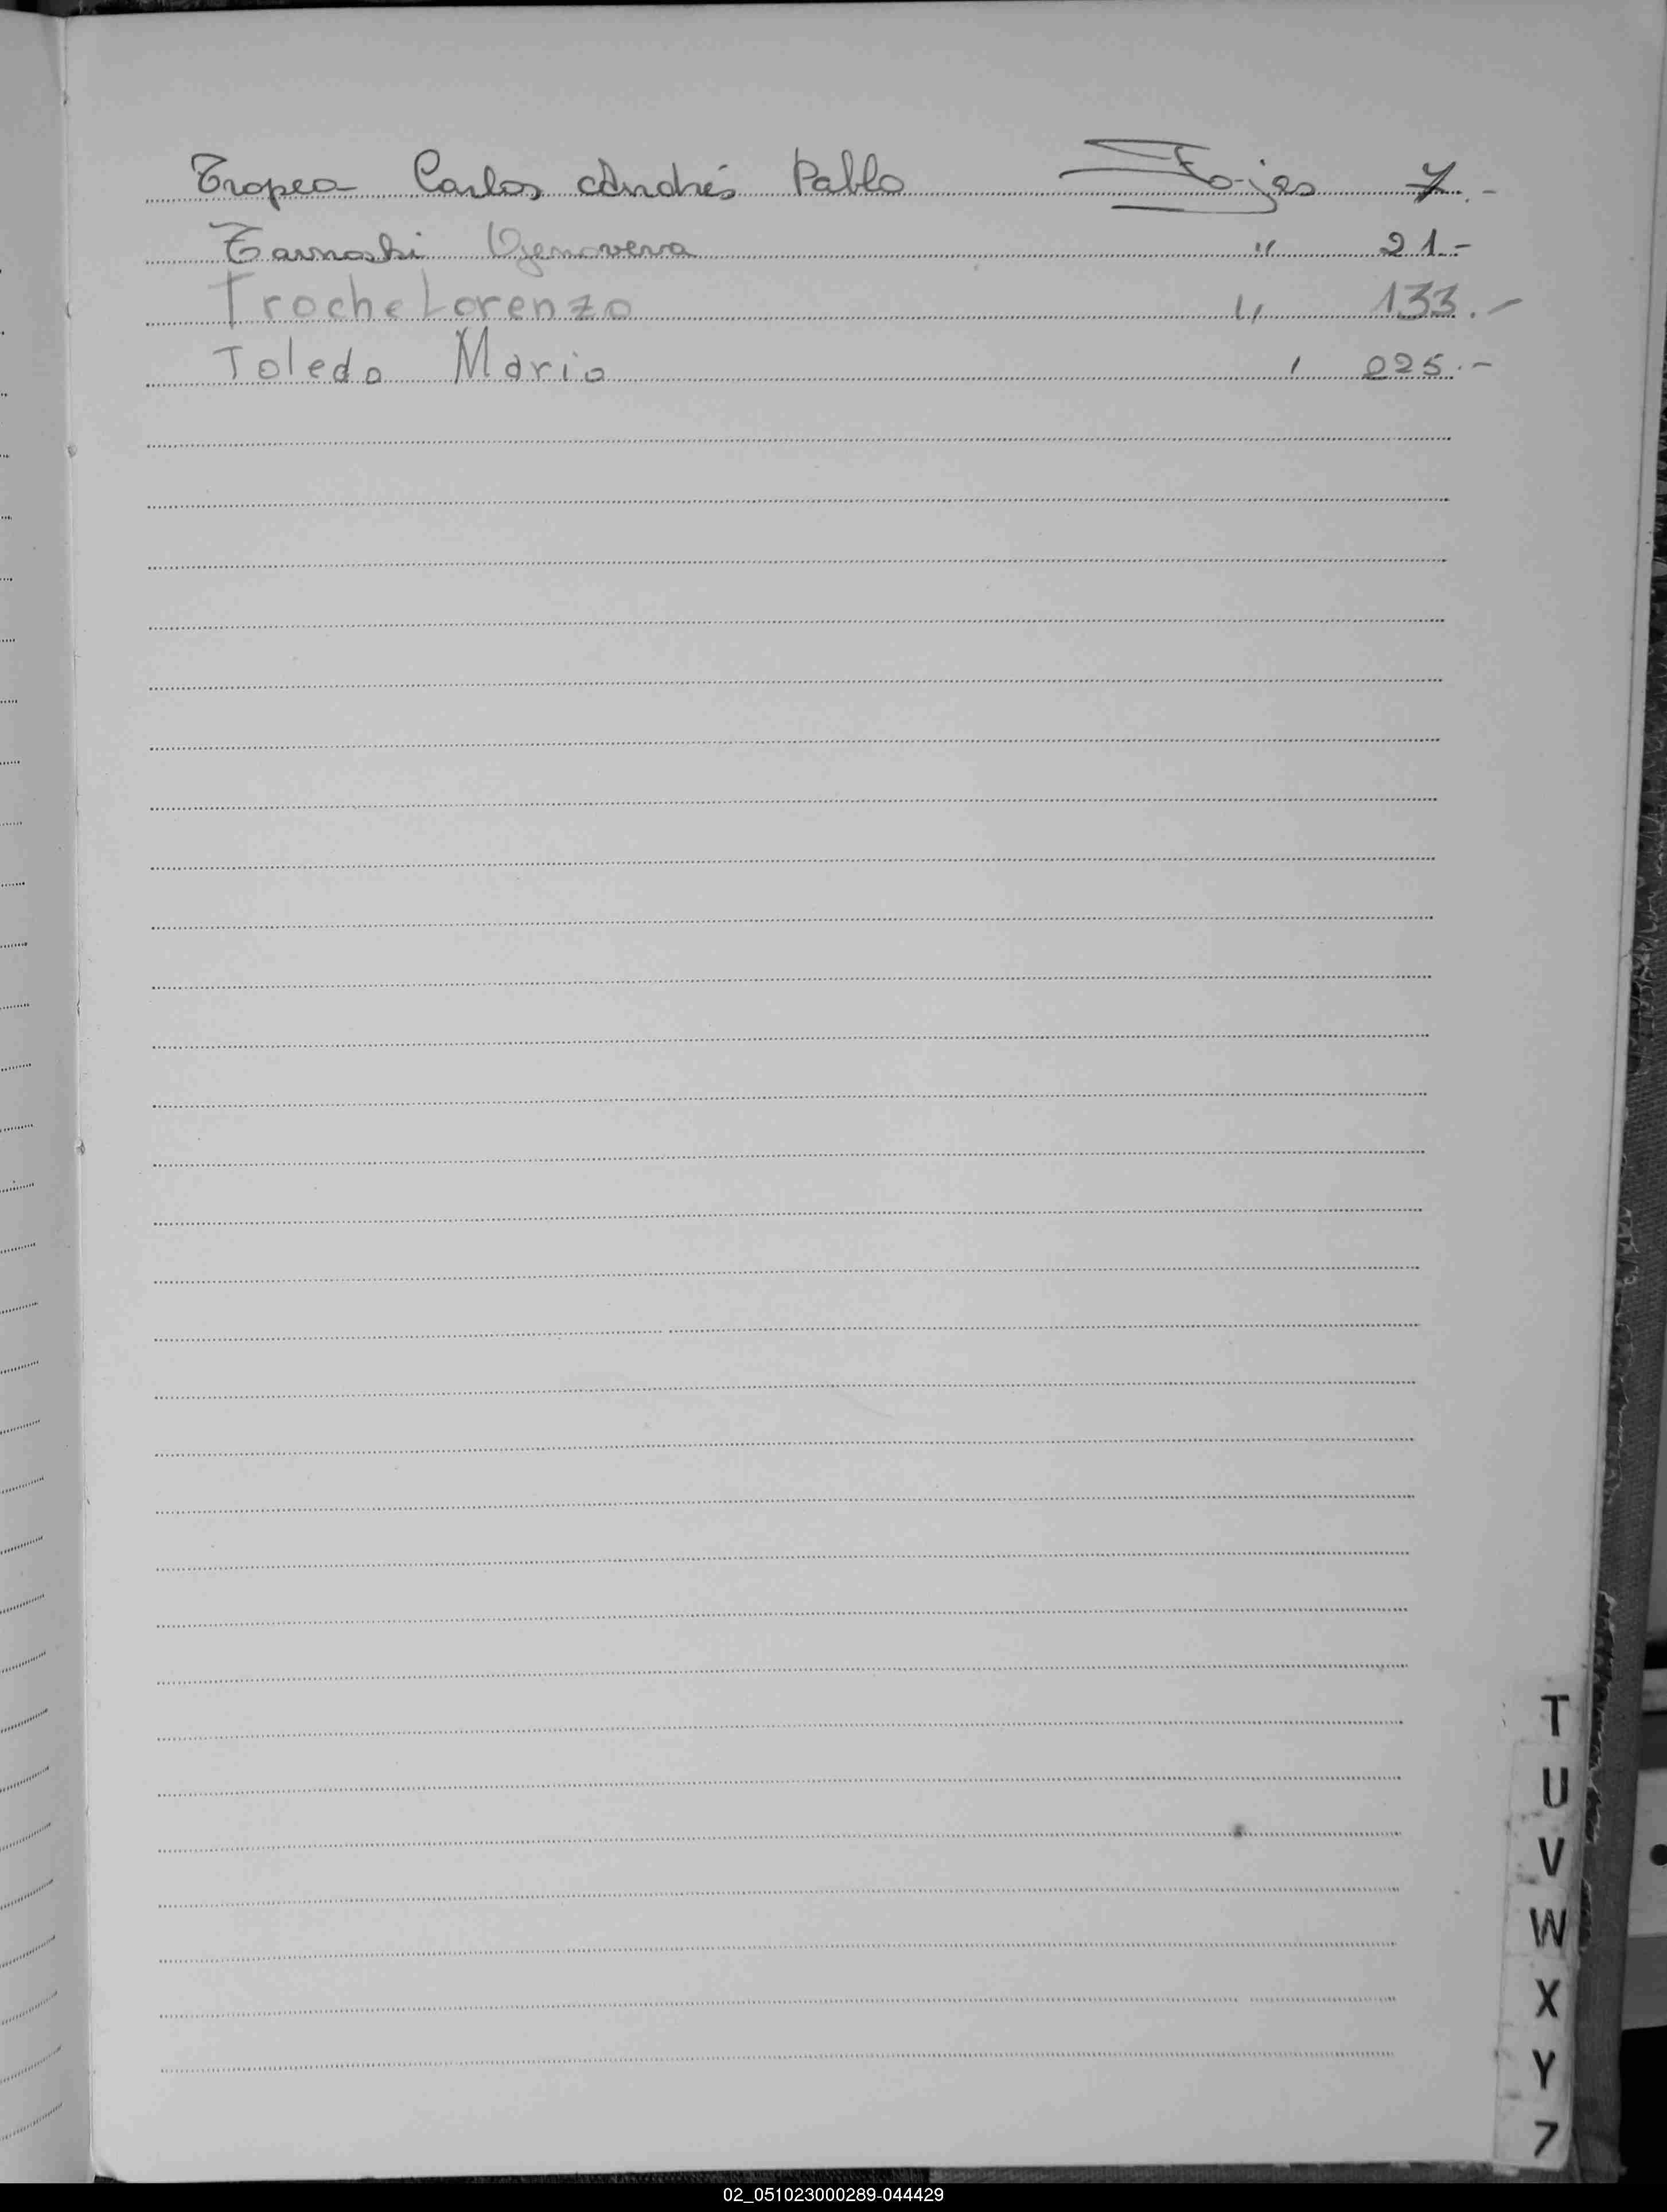 Tropea Carlos Andrés Pablo Fojas 7.-
Tarnoski Genoveva " 21.-
Troche Lorenzo " 133.-
Toledo Mario ' 225.-
T
U
V
W
X
Y
Z
02_051023000289-044429